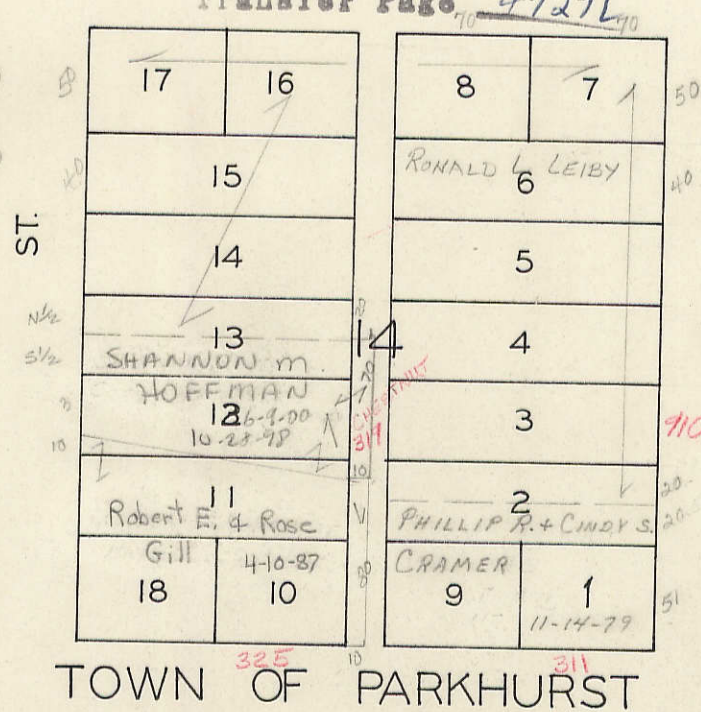 Transfer Page 47272
70 70
17 16 8 7
50 50
15 RONALD L. LEIBY
40 6 40
ST.
14 5
N½ 13 14 4
20
S½ SHANNON M.
HOFFMAN 70
12 6-9-00 CHESTNUT 3
10-28-98 319 910
10 10
11 2 20
Robert E. & Rose PHILLIP R. + CINDY S. 20
Gill 4-10-87 CRAMER
18 10 80 9 1 51
11-14-79
325 10 311
TOWN OF PARKHURST